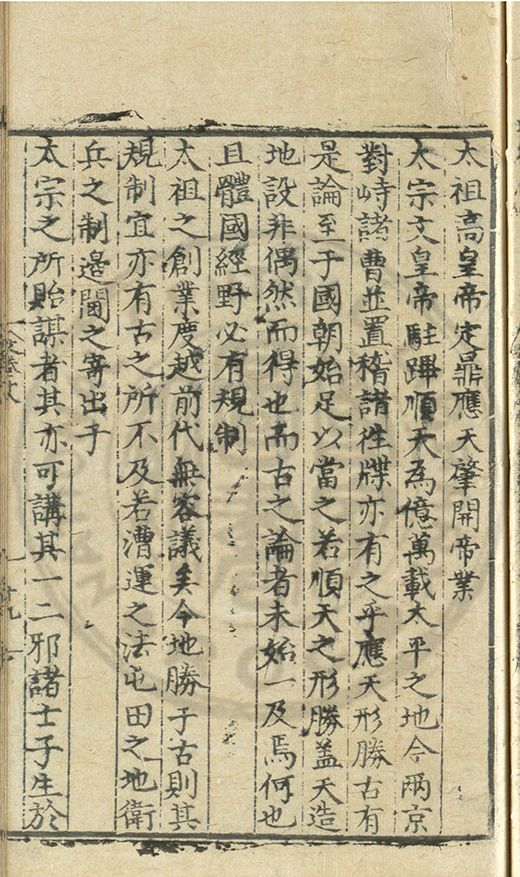 太祖高皇帝定鼎應天肇開帝業
太宗文皇帝駐蹕順天為億萬載太平之地今兩京
對峙諸曹並置稽諸徃牒亦有之乎應天形勝古有
是論至于國朝始足以當之若順天之形勝盖天造
地設非偶然而得也而古之論者未始一及焉何也
且體國經野必有規制
太祖之創業度越前代無容議矣今地勝于古則其
規制宜亦有古之所不及若漕運之法屯田之地衛
兵之制邊閫之寄出于
太宗之所貽謀者其亦可講其一二邪諸士子生於